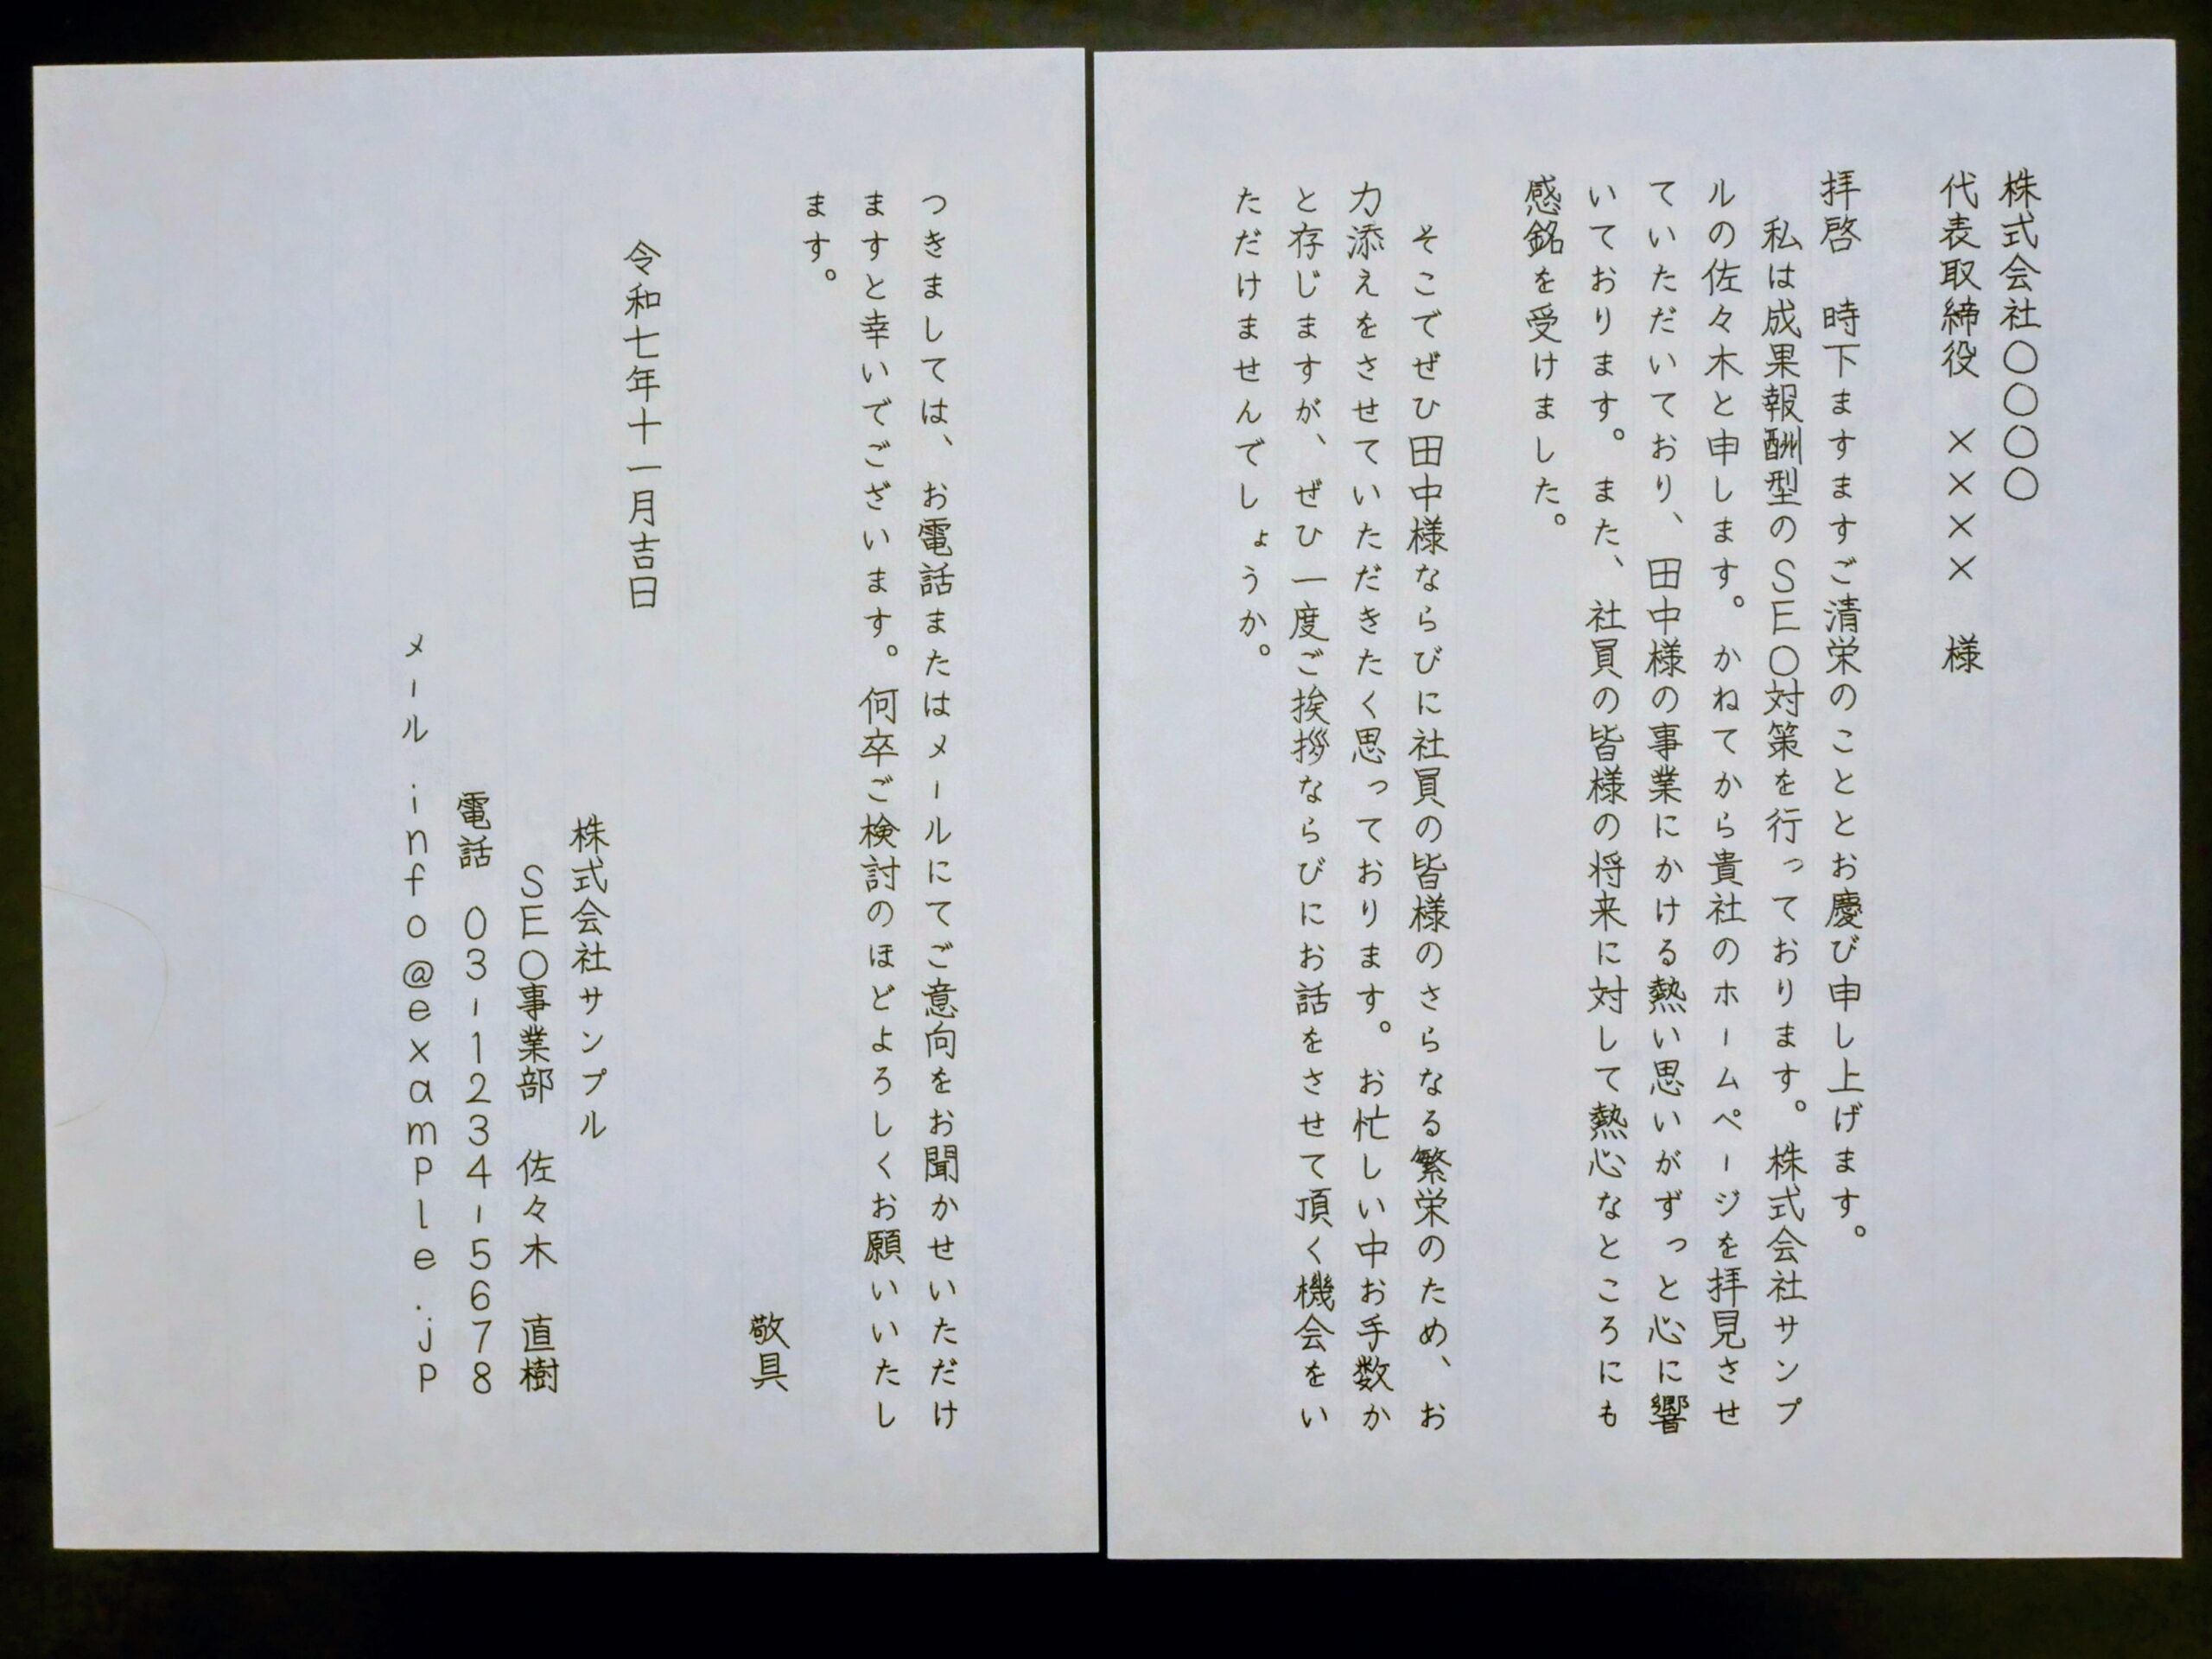 株式会社〇〇〇〇
代表取締役　××××　様
拝啓　時下ますますご清栄のこととお慶び申し上げます。
　私は成果報酬型のＳＥＯ対策を行っております。株式会社サンプ
ルの佐々木と申します。かねてから貴社のホームページを拝見させ
ていただいており、田中様の事業にかける熱い思いがずっと心に響
いております。また、社員の皆様の将来に対して熱心なところにも
感銘を受けました。
　そこでぜひ田中様ならびに社員の皆様のさらなる繁栄のため、お
力添えをさせていただきたく思っております。お忙しい中お手数か
と存じますが、ぜひ一度ご挨拶ならびにお話をさせて頂く機会をい
ただけませんでしょうか。
つきましては、お電話またはメールにてご意向をお聞かせいただけ
ますと幸いでございます。何卒ご検討のほどよろしくお願いいたし
ます。
敬具
令和七年十一月吉日
株式会社サンプル
ＳＥＯ事業部　佐々木　直樹
電話　03-1234-5678
メール　info@example.jp